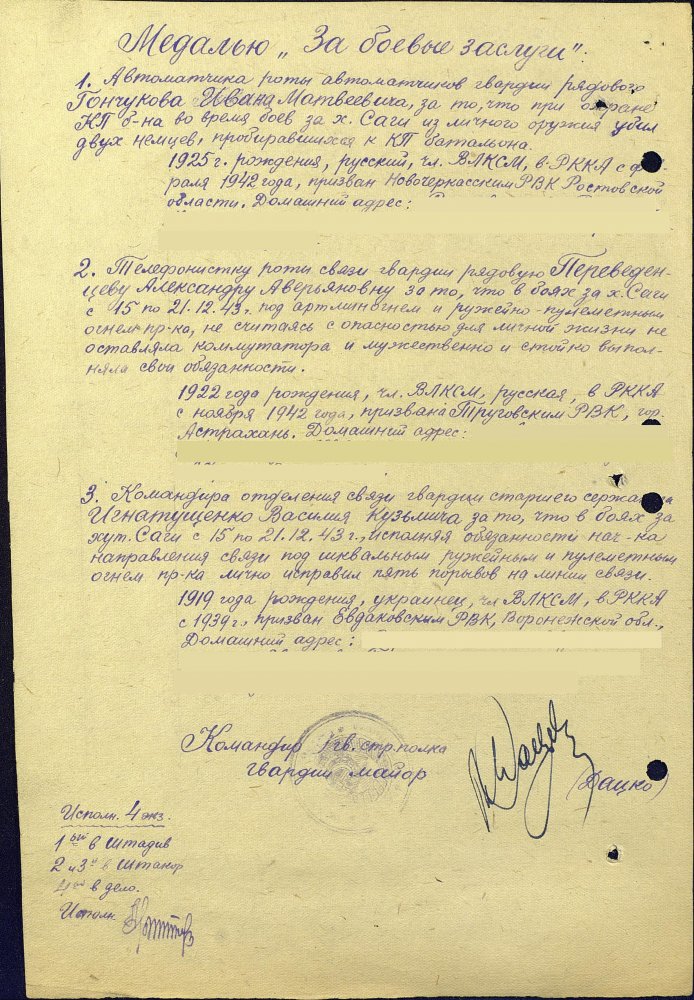 Медалью „За боевые заслуги".
1. Автоматчика роты автоматчиков гвардии рядового
Гончукова Ивана Матвеевича, за то, что при охране
КП б-на во время боев за х. Саги из личного оружия убил
двух немцев, пробиравшихся к КП батальона.
1925 г. рождения, русский, чл. ВЛКСМ, в РККА с фев-
раля 1942 года, призван Новочеркасским РВК Ростовской
области. Домашний адрес:
2. Телефонистку роты связи гвардии рядовую Переведен-
цеву Александру Аверьяновну за то, что в боях за х. Саги
с 15 по 21.12.43г. под артминогнем и ружейно-пулеметным
огнем пр-ка, не считаясь с опасностью для личной жизни не
оставляла коммутатора и мужественно и стойко выпол-
няла свои обязанности.
1922 года рождения, чл. ВЛКСМ, русская, в РККА
с ноября 1942 года, призвана Труговским РВК, гор.
Астрахань. Домашний адрес:
3. Командира отделения связи гвардии старшего сержанта
Игнатущенко Василия Кузьмича за то, что в боях за
хут. Саги с 15 по 21.12.43г., исполняя обязанности нач-ка
направления связи под шквальным ружейным и пулеметным
огнем пр-ка лично исправил пять порывов на линии связи.
1919 года рождения, украинец, чл ВЛКСМ, в РККА
с 1939г., призван Евдаковским РВК, Воронежской обл.,
Домашний адрес:
Командир гв. стр. полка
гвардии майор
(Дацко)
Исполн. 4 экз.
1ый в штадив
2 и 3й в штакор
4ый в дело.
Исполн.